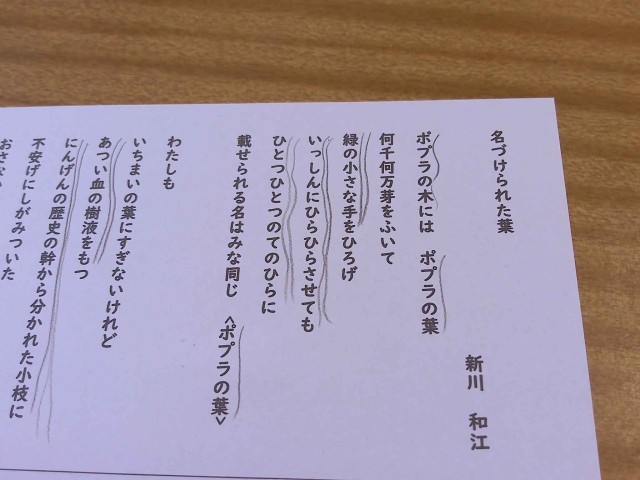 名づけられた葉
新川 和江
ポプラの木には ポプラの葉
何千何万芽をふいて
緑の小さな手をひろげ
いっしんにひらひらさせても
ひとつひとつのてのひらに
載せられる名はみな同じ <ポプラの葉>
わたしも
いちまいの葉にすぎないけれど
あつい血の樹液をもつ
にんげんの歴史の幹から分かれた小枝に
不安げにしがみついた
おさない